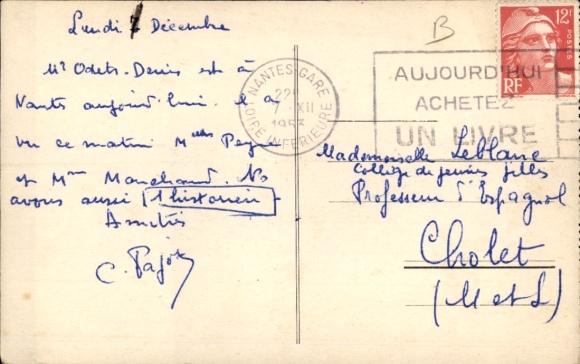 Lundi 7 Décembre
Mr Odets-Denis est à
Nantes aujourd'hui. Il a
vu ce matin Melles
et Mme Marchand. Ns
avons aussi l'historien
Amitiés
C.
B
NANTES-GARE
LOIRE INFERIEURE
22H
7-XII
1953
AUJOURD'HUI
ACHETEZ
UN LIVRE
12F
POSTES
RF
Mademoiselle Leblanc
Collège de jeunes filles
Professeur d'Espagnol
Cholet
(M et L)